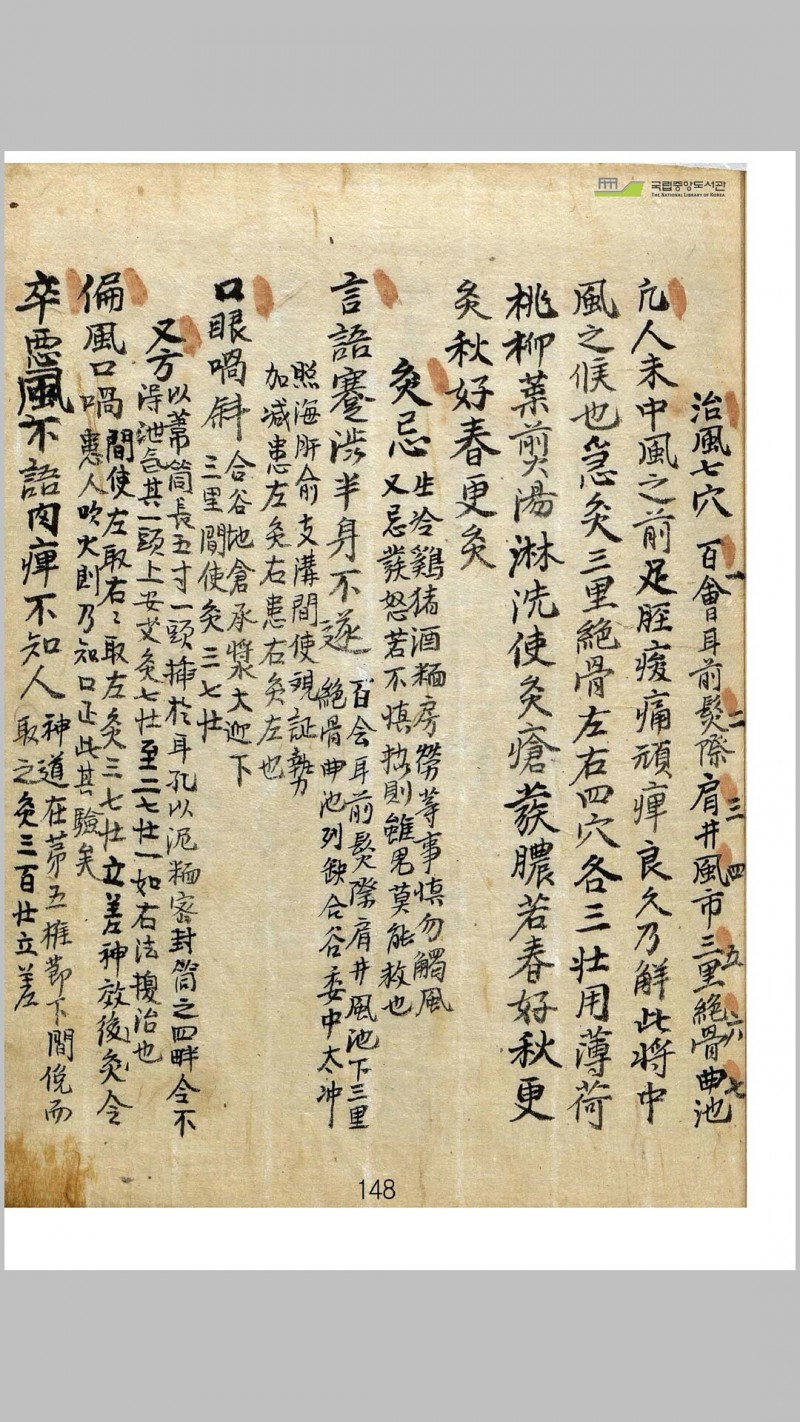 국립중앙도서관
THE NATIONAL LIBRARY OF KOREA
治風七穴 百會耳前髮際肩井風市三里絕骨曲池
一 二 三 四 五 六 七
凡人未中風之前足脛痠痛頑痺良久乃解此將中
風之候也急灸三里絕骨左右四穴各三壯用薄荷
桃柳葉煎湯淋洗使灸瘡發膿若春好秋更
灸秋好春更灸
灸忌 生冷鷄猪酒麵房勞等事慎勿觸風
又忌發怒若不慎攝則雖男莫能救也
言語蹇澁半身不遂 百会耳前髮際肩井風池下三里
絕骨曲池列缺合谷委中太冲
照海肝俞支溝間使現証勢
加减患左灸右患右灸左也
口眼喎斜 合谷地倉承漿大迎下
三里間使灸三七壯
又方 以葦筒長五寸一頭揷於耳孔以泥麵密封筒之四畔令不
淂泄气其一頭上安艾灸七壯至二七壯一如右法摉治也
偏風口喎 間使左取右〻取左灸三七壯立差神效後灸令
患人吹火則乃知口正此其驗矣
卒惡風不語肉痺不知人 神道在苐五椎莭下間俛而
取之灸三百壯立差
148